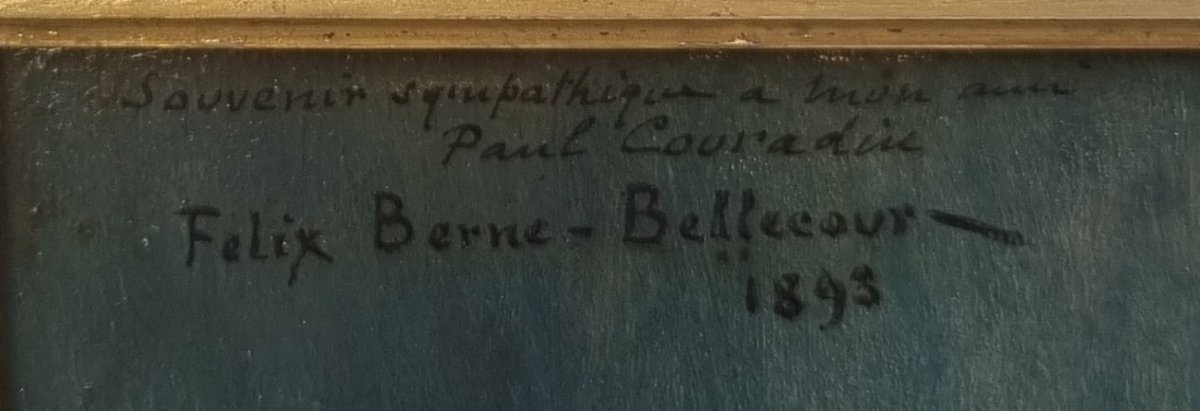 Souvenir sympathique a mon ami
Paul Couradin
Felix Berne-Bellecour
1893